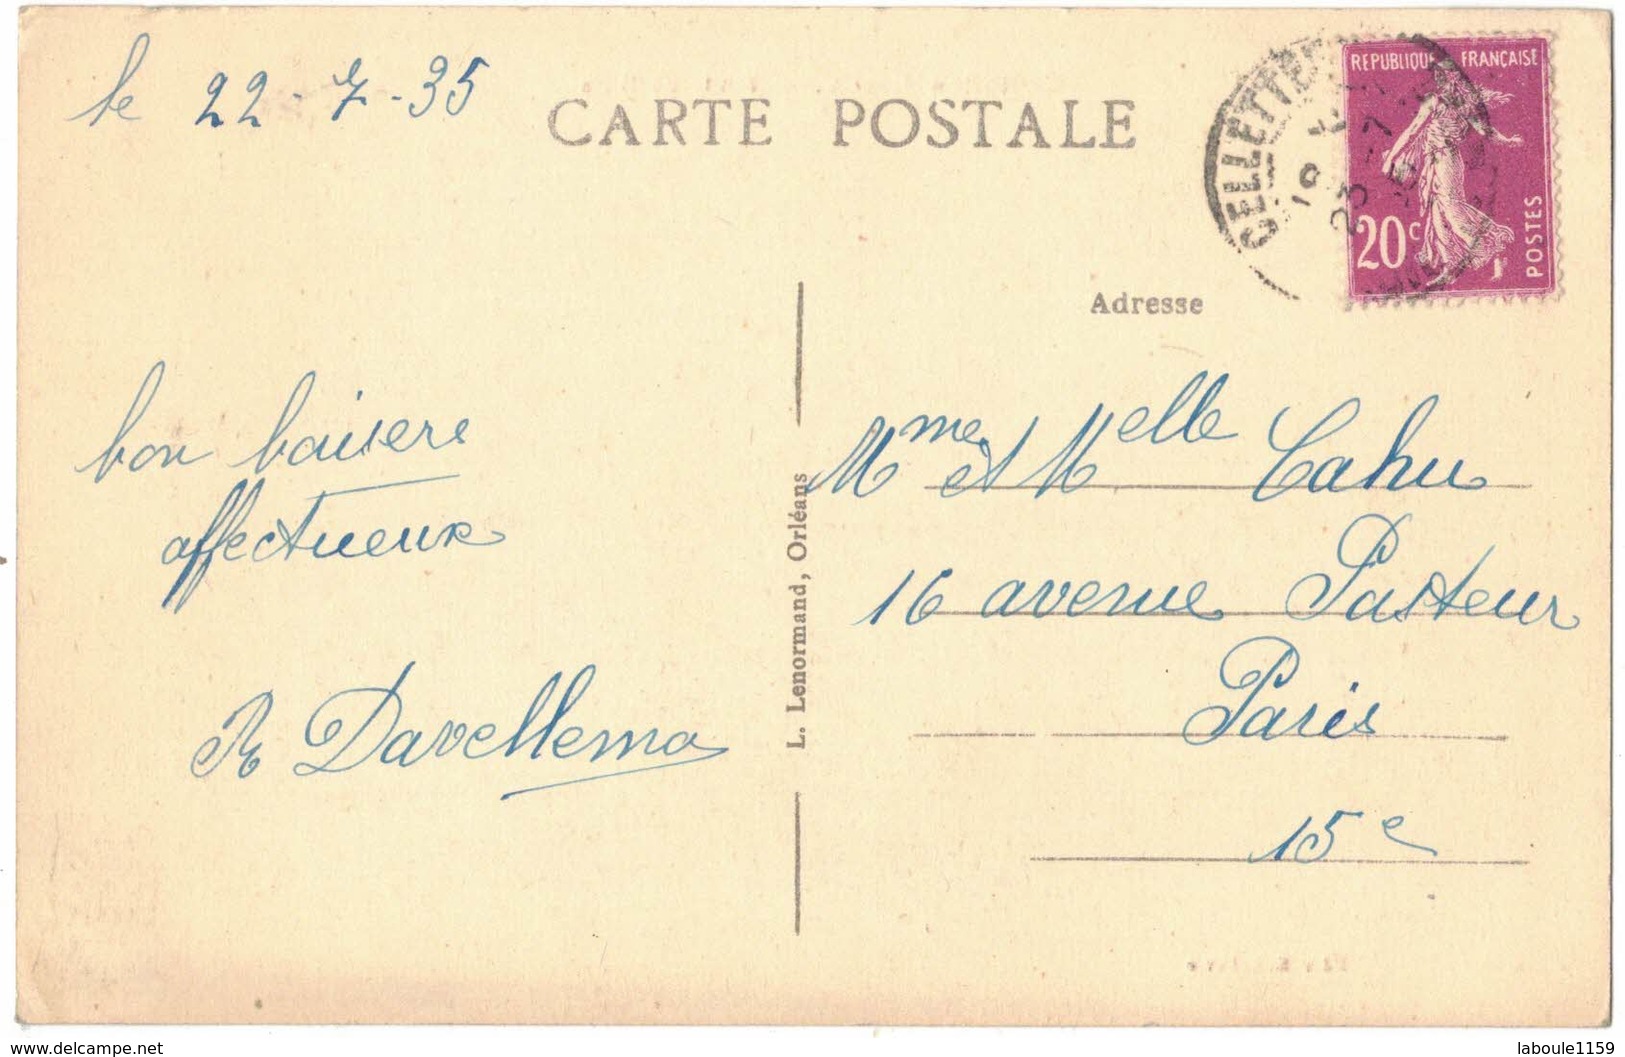 le 22-7-35
CARTE POSTALE
REPUBLIQUE FRANÇAISE
20c
POSTES
CELLETTES
23 -7
Adresse
bon baisers
affectueux
R Davellema
L. Lenormand, Orléans
Mme et Melle Cahu
16 avenue Pasteur
Paris
15e
www.delcampe.net
laboule1159